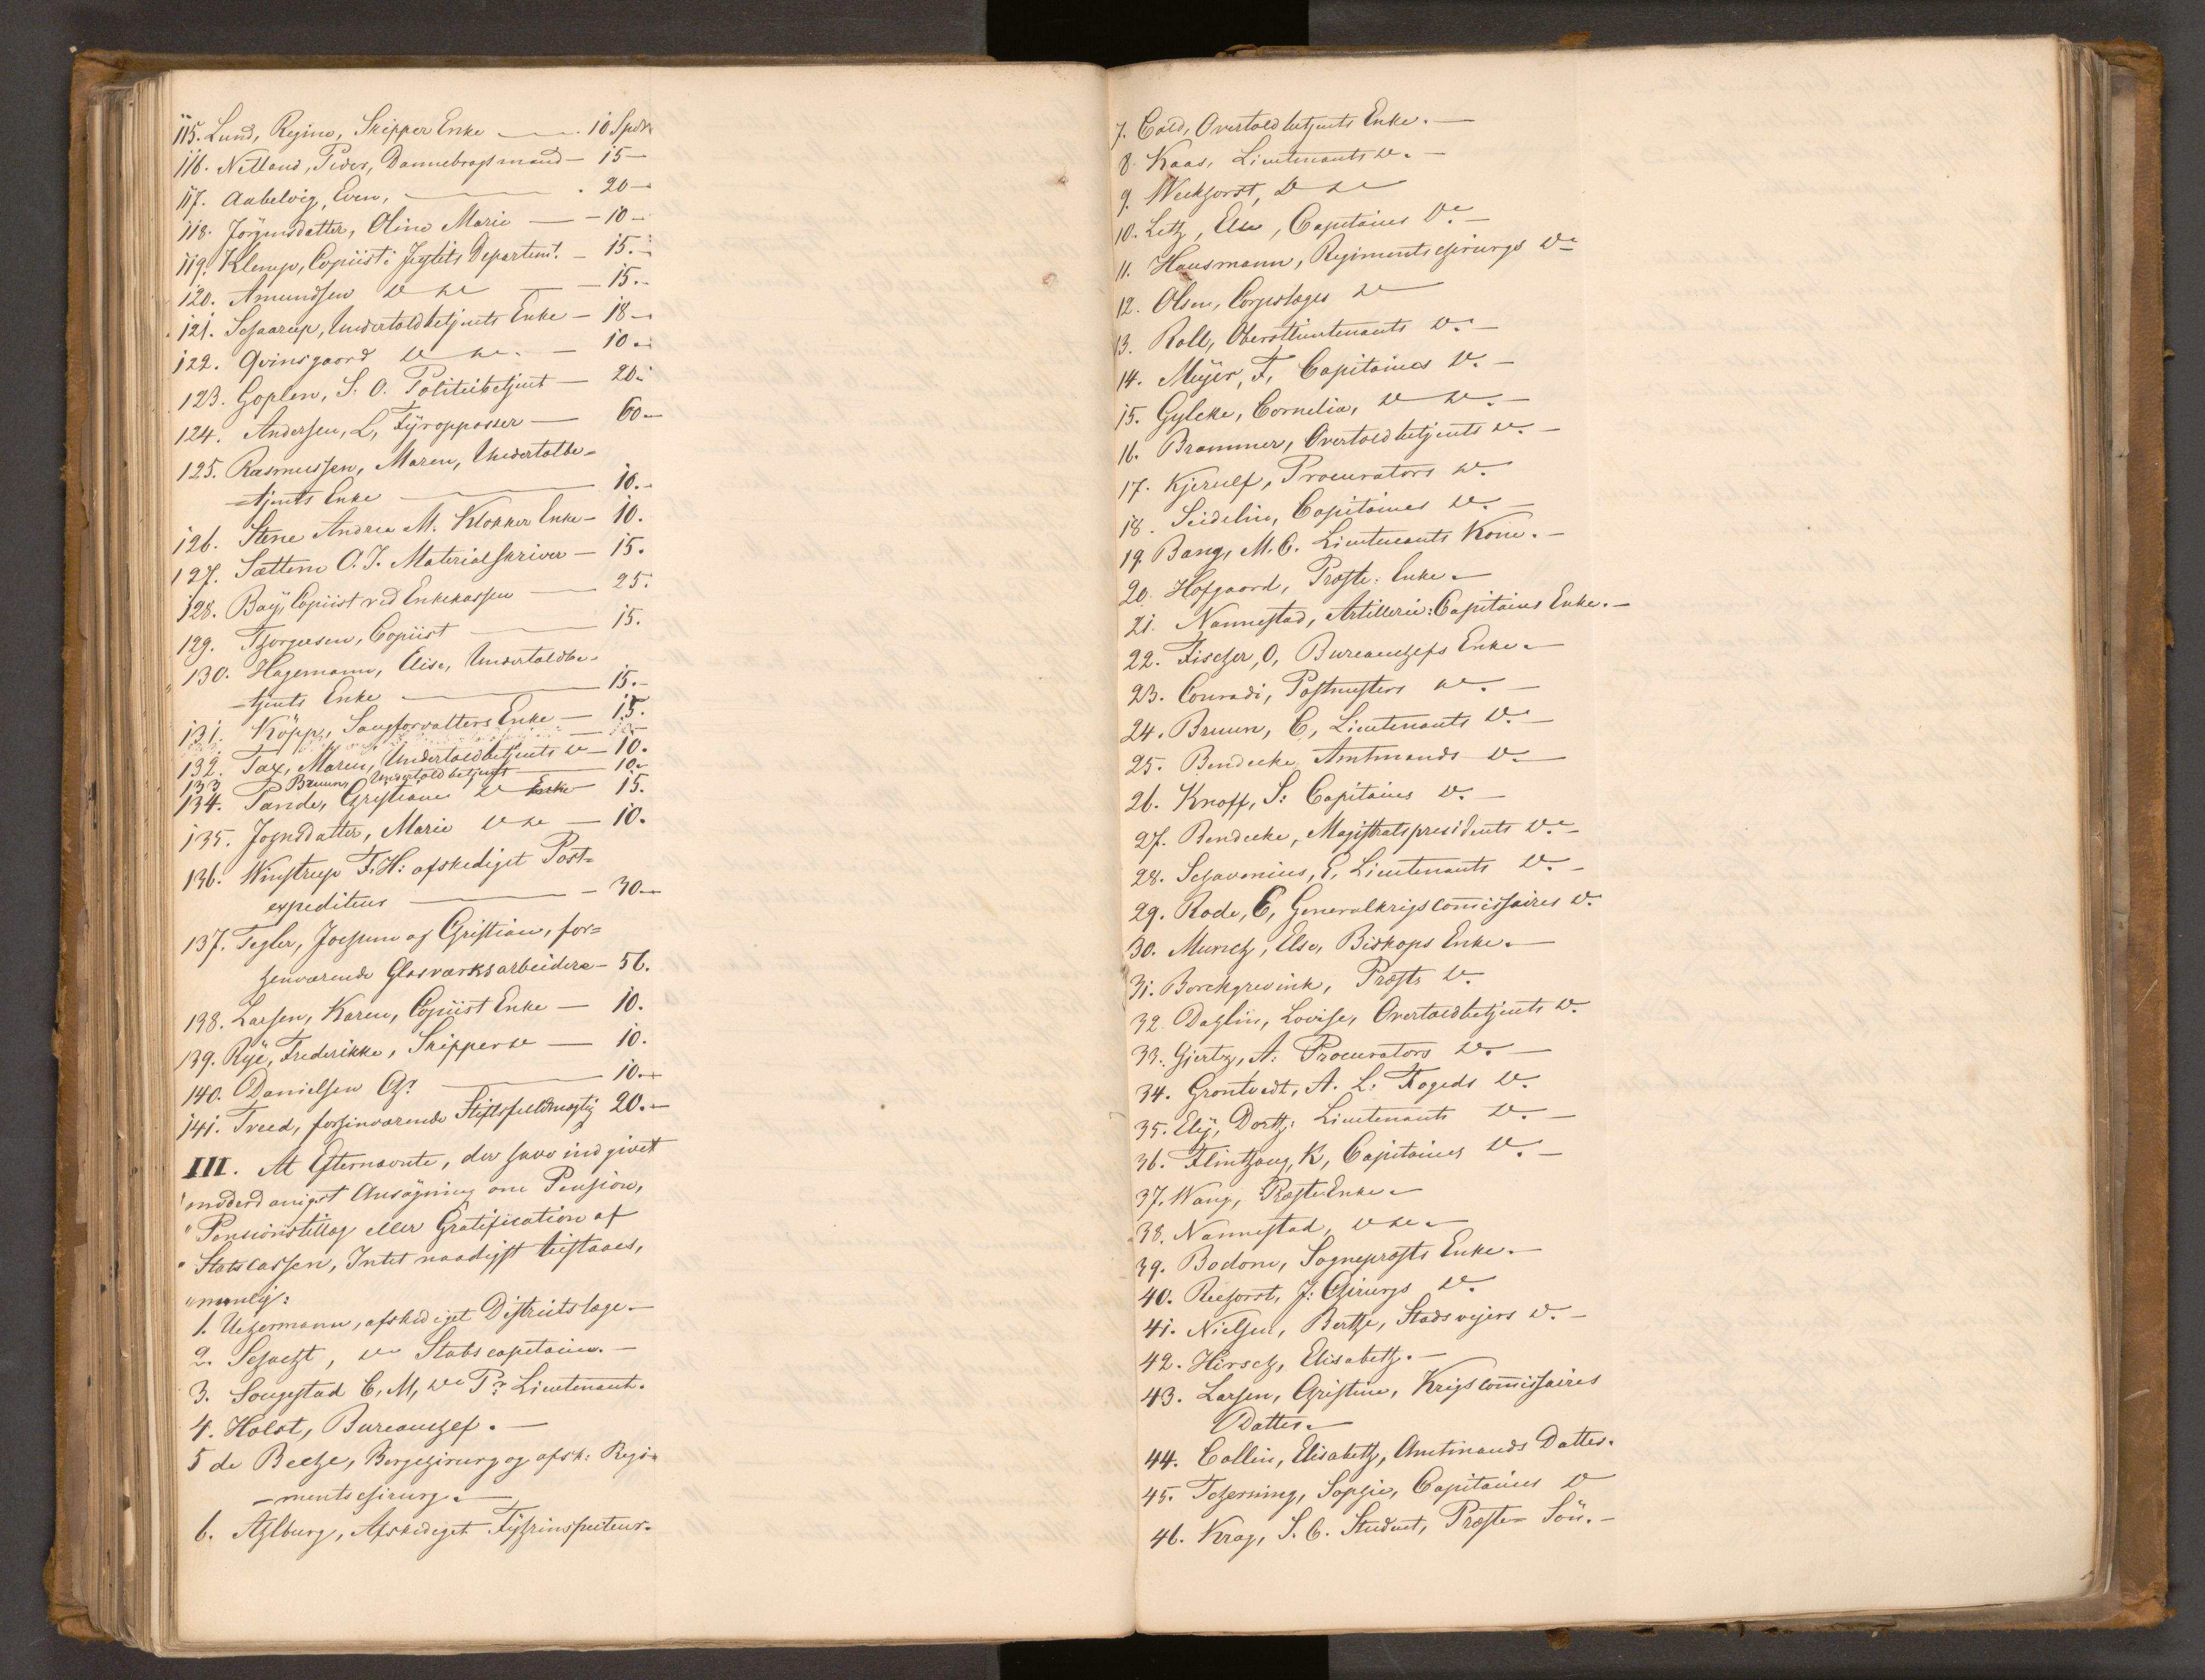 115. Lund, Regine, Skipper Enke — 10 Spdr
116. Netland, Peder, Dannebrogsmand — 15 —
117. Aabelvig, Even, — 20 —
118. Jörgensdatter, Oline Marie — 10 —
119. Klemp, Copiist i Justits Departemt. — 15. —
120. Amundsen do do — 15. —
121. Schaarup, Undertoldbetjents Enke — 18 —
122. Qvinsgaard do do. — 10 —
123. Goplen, S. O. Politiebetjent — 20.
124. Andersen, L, Fÿropposser — 60 —
125. Rasmussen, Maren, Undertolbe=
=tjents Enke — 10. —
126. Stene Andrea M. Klokker Enke — 10.
127. Sættem O. J. Materialskriver — 15.
128. Baÿ, Copiist ved Enkekassen — 25.
129. Thorgersen, Copiist — 15.
130. Hagemann, Elise, Undertoldbe-
-tjents Enke — 15. —
131. Köpp, Saugforvalters Enke — 15.
132. Tax, Maren, Undertoldbetjents do — 10.
133 Bruun, Undertoldbetjents — 10 —
134. Pande, Christiane do Enke — 15.
135. Johnsdatter, Marie do do — 10.
136. Winstrup F. H: afskediget Post=
expediteur — 30 —
137. Tegler, Jochum og Christian, for=
henværende Glasværksarbeidere — 56.
138. Larsen, Karen, Copiist Enke — 10.
139. Rÿe, Frederikke, Skipper do — 10.
140. Danielsen Chr. — 10. —
141. Treed, forhenværende Stiftsfuldmægtig 20. —
III. At Efternævnte, der have indgivet
"underdanigst Ansögning om Pension,
"Pensionstillæg eller Gratification af
"Statscassen, Intet naadigst tilstaaes,
"nemlig:
1. Uchermann, afskediget Districtslæge. —
2. Schacht, do Stabscapitaine. —
3. Sougstad C, M, do Pr. Lieutenant.
4. Holst, Bureauchef. —
5 de Beche, Bergchirurg og afsk: Regi=
=mentschirurg. —
6. Ahlburg, Afskediget Fÿhrinspecteur. —
7. Cold, Overtoldbetjents Enke. —
8. Kaas, Lieutenants do. —
9. Weckhorst, do do
10. Letz, Else, Capitaines do. —
11. Hausmann, Regimentschirurgs do —
12. Olsen, Corpslæges do
13. Roll, Oberstlieutenants do. —
14. Meÿer, F, Capitaines do. —
15. Gylche, Cornelia, do do. —
16. Brammer, Overtoldbetjents do. —
17. Kjerulf, Procurators do.
18. Seidelin, Capitaines do. —
19. Bang, M. C. Lieutenants Kone. —
20. Hofgaard, Præste: Enke —
21. Nannestad, Artillerie: Capitaines Enke. —
22. Fischer, O, Bureauchefs Enke —
23. Conradi, Postmesters do. —
24. Bruun, C, Lieutenants do. —
25. Bendeeke Amtmands do —
26. Knoff, S: Capitaines do. —
27. Bendeeke, Magistratspresidents do. —
28. Schavenius, E, Lieutenants do. —
29. Rode, C, Generalkrigscommissaires do.
30. Munch, Else, Biskops Enke. —
31. Borchgrevink, Præsts do.
32. Dahlin, Lovise, Overtoldbetjents do.
33. Gjertz, A: Procurators do. —
34. Grontvedt, A. L. Fogeds do.
35. Elÿ, Dorth: Lieutenants do. —
36. Flinthaug, K, Capitaines do. —
37. Wang, Præste Enke —
38. Nannestad, do do —
39. Bodom, Sognepræsts Enke. —
40. Reehorst, J: Chirurgs do.
41. Nielsen, Berthe, Stadsvejers do. —
42. Hirsch, Elisabeth. —
43. Larsen, Christine, Krigscommissaires
Datter. —
44. Collin, Elisabeth, Amtmands Datter.
45. Tcherning, Sophie, Capitaines do
46. Krag, S. C. Student, Præste= Sön. —